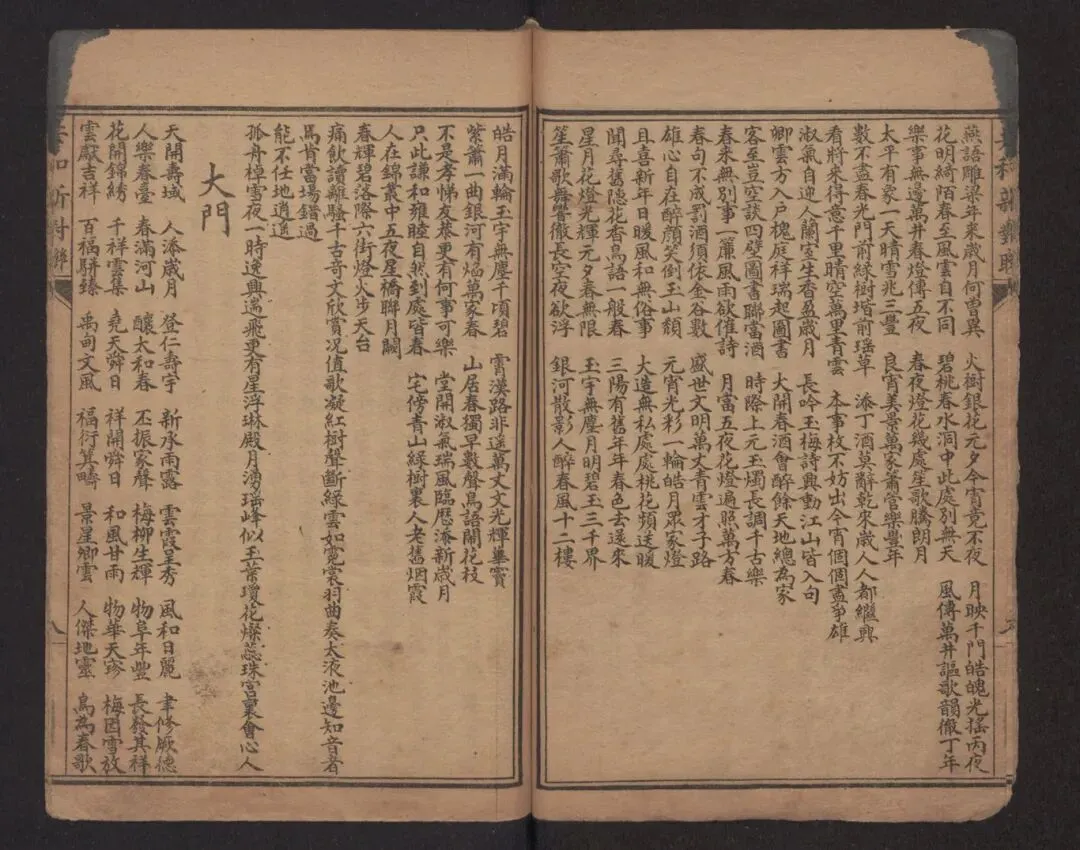 燕語雕梁年來歲月何曾異　火樹銀花元夕今宵竟不夜　月映千門皓魄光搖丙夜
花明綺陌春至風雲自不同　碧桃春水洞中此處別無天　風傳萬井謳歌韻徹丁年
樂事無邊萬井春燈傳五夜　春夜燈花幾處笙歌騰朗月
太平有象一天晴雪兆三豐　良宵美景萬家簫管樂豐年
數不盡春光門前綠樹堦前瑶草　添丁酒莫辭乾來歲人人都繼興
看將來得意千里晴空萬里青雲　本事枚不妨出今宵個個盡爭雄
淑氣自迎人蘭室生香盈歲月　長吟玉梅詩興動江山皆入句
卿雲方入戶槐庭祥瑞起圖書　大開春酒會醉餘天地總為家
客至豈空談四壁圖書聯當酒　時際上元玉燭長調千古樂
春來無別事一簾風雨欲催詩　月當五夜花燈遍照萬方春
春句不成罰酒須依金谷數　盛世文明萬丈青雲才子路
雄心自在醉顔笑倒玉山頹　元宵光彩一輪皓月眾家燈
且喜新年日暖風和無俗事　大造無私處處桃花頻送暖
聞尋舊隐花香鳥語一般春　三陽有舊年年春色去還來
星月花燈光輝元夕春無限　玉宇無塵月明碧玉三千界
笙簫歌舞響徹長空夜欲浮　銀河散影人醉春風十二樓
皓月滿輪玉宇無塵千頃碧　霄漢路非遥萬丈文光輝華實
紫簫一曲銀河有焰萬家春　山居春獨早數聲鳥語鬧花枝
不是孝悌友恭更有何事可樂　堂開淑氣瑞風臨歷添新歲月
只此謙和雍睦自然到處皆春　宅傍青山綠樹裏人老舊烟霞
人在錦叢中五夜星橋聯月闕
春輝碧落際六街燈火步天台
痛飲讀離騷千古奇文欣賞况值歌凝紅樹聲斷綠雲如霓裳羽曲奏太液池邊知音者
焉肯當場錯過
能不任地逍遥
孤舟棹雪夜一時逸興遄飛更有星浮琳殿月湧瑶峰似玉葉瓊花燦蕊珠宮裏會心人
大門
天開壽域　人添歲月　登仁壽宇　新承雨露　雲霞呈秀　風和日麗　聿修厥德
人樂春臺　春滿河山　釀太和春　丕振家聲　梅柳生輝　物阜年豐　長發其祥
花開錦綉　千祥雲集　堯天舜日　祥開舜日　和風甘雨　物華天珍　梅因雪放
雲獻吉祥　百福駢臻　禹甸文風　福衍箕疇　景星卿雲　人傑地靈　鳥為春歌
八